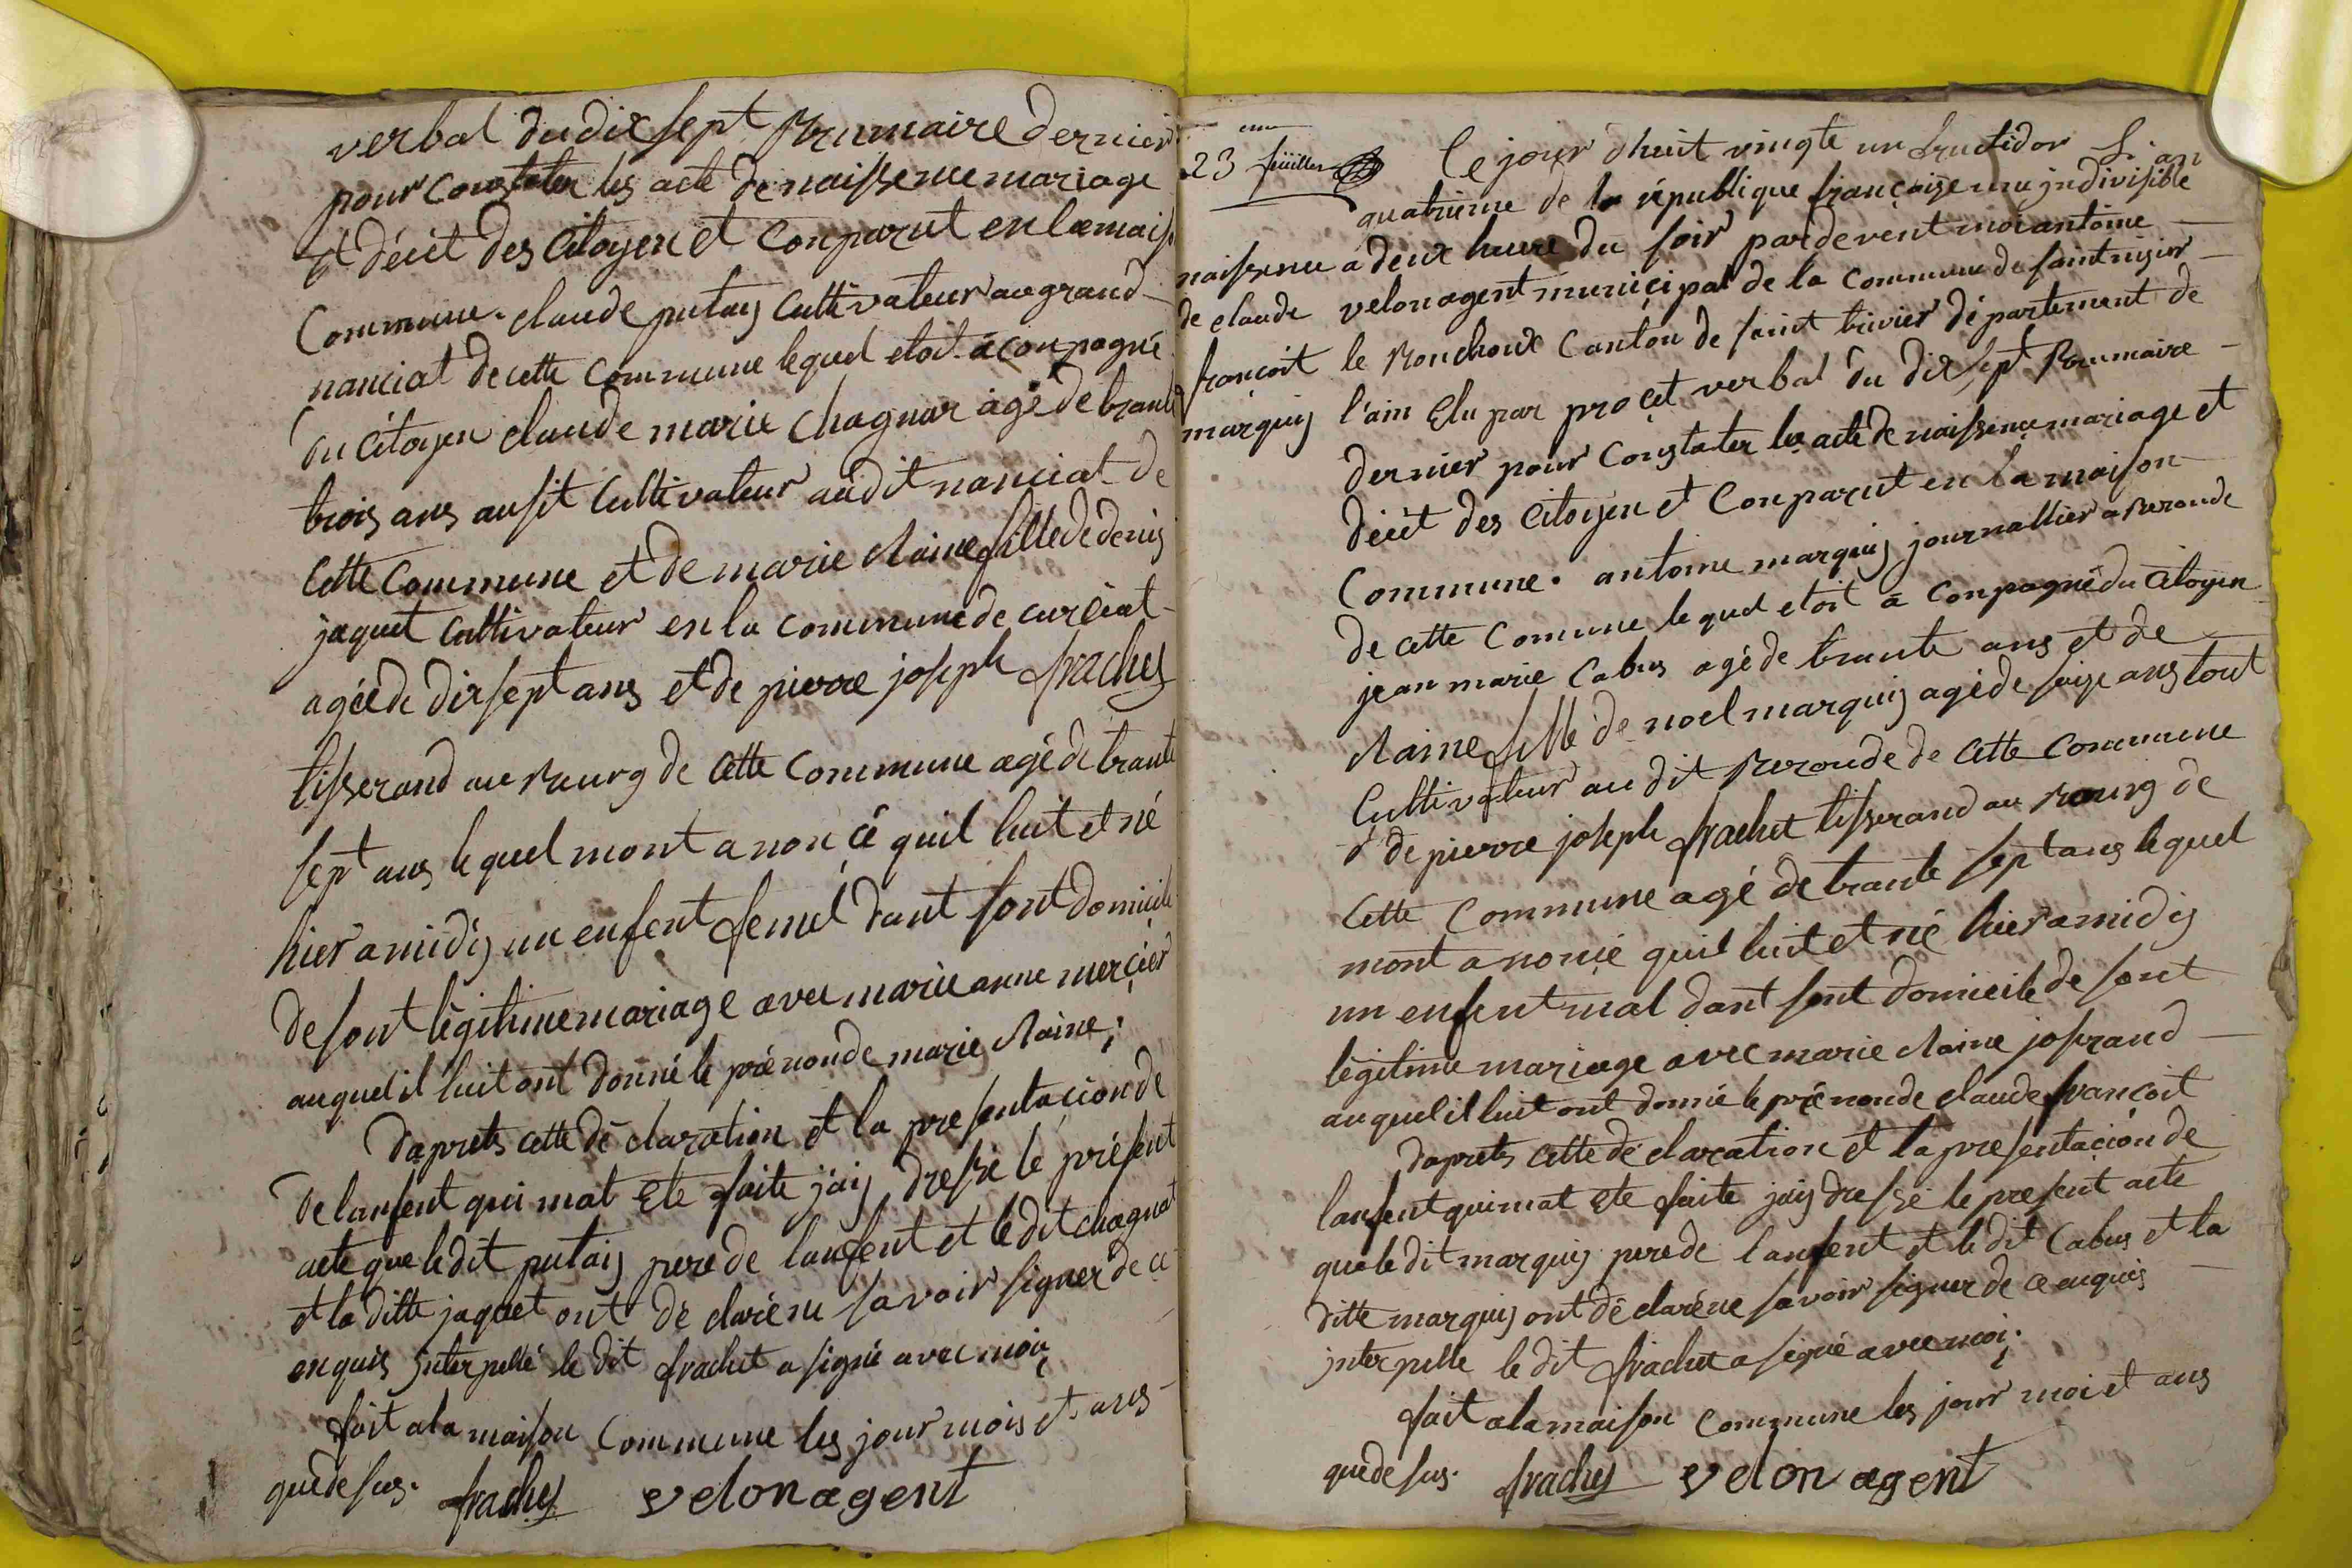 verbal du dix sept Brumaire dernier
pour constater les acte de naissence mariage
et décet des citoyen et conparut en la mais
commune. claude putay cultivateur au grand
nanciat de cette commune lequel etoit aconpagné
du citoyen claude marie chagnar agé de trante
trois ans ausit cultivateur audit nanciat de
cette commune et de marie claine fille de denis
jaquet cultivateur en la commune de curciat
agée de dix sept ans et de pierre joseph frachet
tisserand au Bourg de cette commune agé de trante
sept ans lequel mont a non cé quil luit et né
hier a midis un enfent femel dant sont domicile
de sont légitime mariage avec marie anne mercier
auquel il luit ont donné le prénon de marie claine;
daprets cette déclaration et la presentacion de
de lanfent qui mat ete faite jais dressé le présent
acte que le dit putais pere de lanfent et le dit chagnat
et la ditte jaquet ont déclaré ne savoir signer de ce
enquis interpellé le dit frachet a signé avec moi
fait a la maison commune les jour mois et ans
que desus. frachet velon agent
23 feüillet
naissence
de claude
françoit
marquis
Ce jour dhuit vingte un fructidor L'an
quatrieme de la république françaize une jndivisible
a deux heure du soir pardevent moi antoine
velon agent municipal de la commune de saint nisier
le Bouchoux canton de saint trivier département de
l'ain Elu par procet verbal du dix sept Brumaire
dernier pour constater les acte de naissence mariage et
décet des citoyen et conparut en la maison
commune. antoine marquis journallier a Beronde
de cette comune lequel etoit a conpagné du citoyen
jean marie Cabus agé de trante ans et de
claine fille de noel marquis agé de saize ans tout
cultivateur au dit Beronde de cette commune
et de pierre joseph frachet tisserand au Bourg de
cette commune agé de trante sept ans lequel
mont anoncé quil luit et né hier a midis
un enfent mal dant sont domicile de sont
légitime mariage avec marie claine josrand
auquel il luit ont donné le prénon de claude françoit
daprets cette déclaration et la presentacion de
lanfent qui mat ete faite jais dressé le present acte
que le dit marquis pere de lanfent et le dit Cabus et la
ditte marquis ont déclaré ne savoir signer de ce enquis
jnterpelle le dit frachet a signé avec moi.
fait a la maison commune les jour moi et ans
que desus. frachet velon agent